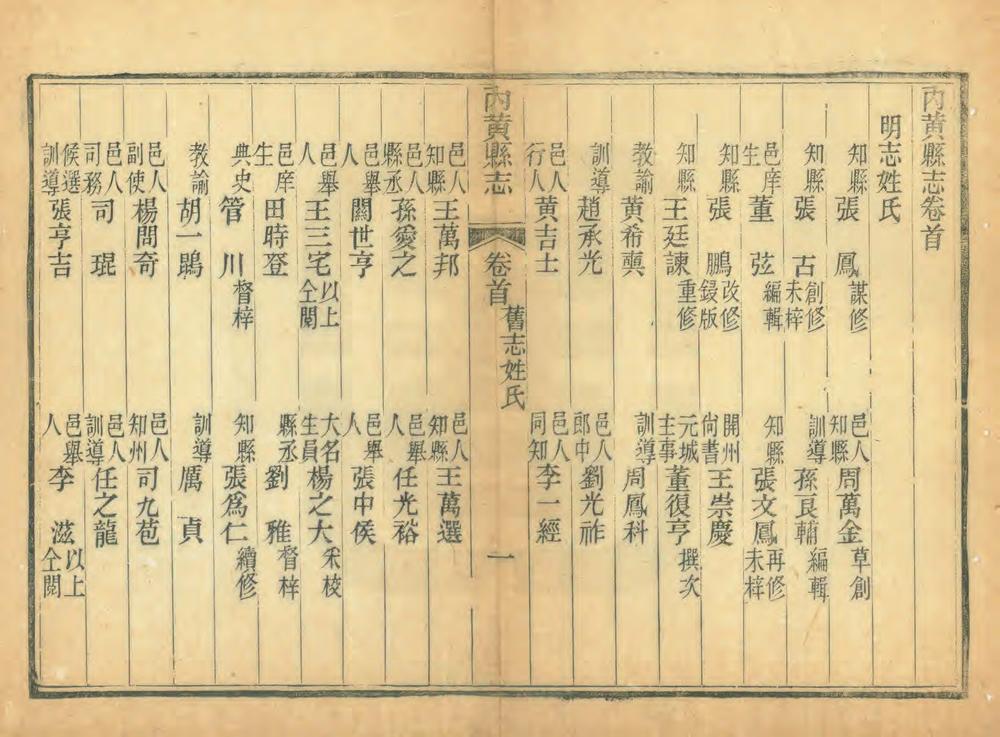 內黃縣志卷首
明志姓氏
知縣張鳳謀修 邑人知縣周萬金草創
知縣張古創修未梓 訓導孫良輔編輯
邑庠生董弦編輯 知縣張文鳳再修未梓
知縣張鵬改修鋟版 開州尙書王崇慶
知縣王廷諫重修 元城主事董復亨撰次
教諭黃希奭 訓導周鳳科
訓導趙承光 邑人郎中劉光祚
邑人行人黃吉士 邑人同知李一經
內黃縣志 卷首 舊志姓氏 一
邑人知縣王萬邦 邑人知縣王萬選
邑人縣丞孫愛之 邑舉人任光裕
邑舉人閻世亨 邑舉人張中侯
邑舉人王三宅以上仝閱 大名生員楊之大釆校
邑庠生田時登 縣丞劉雅督梓
典史管川督梓 知縣張爲仁續修
教諭胡一鵾 訓導厲貞
邑人副使楊問奇 邑人知州司九苞
邑人司務司琨 邑人訓導任之龍
候選訓導張亨吉 邑舉人李滋以上仝閱